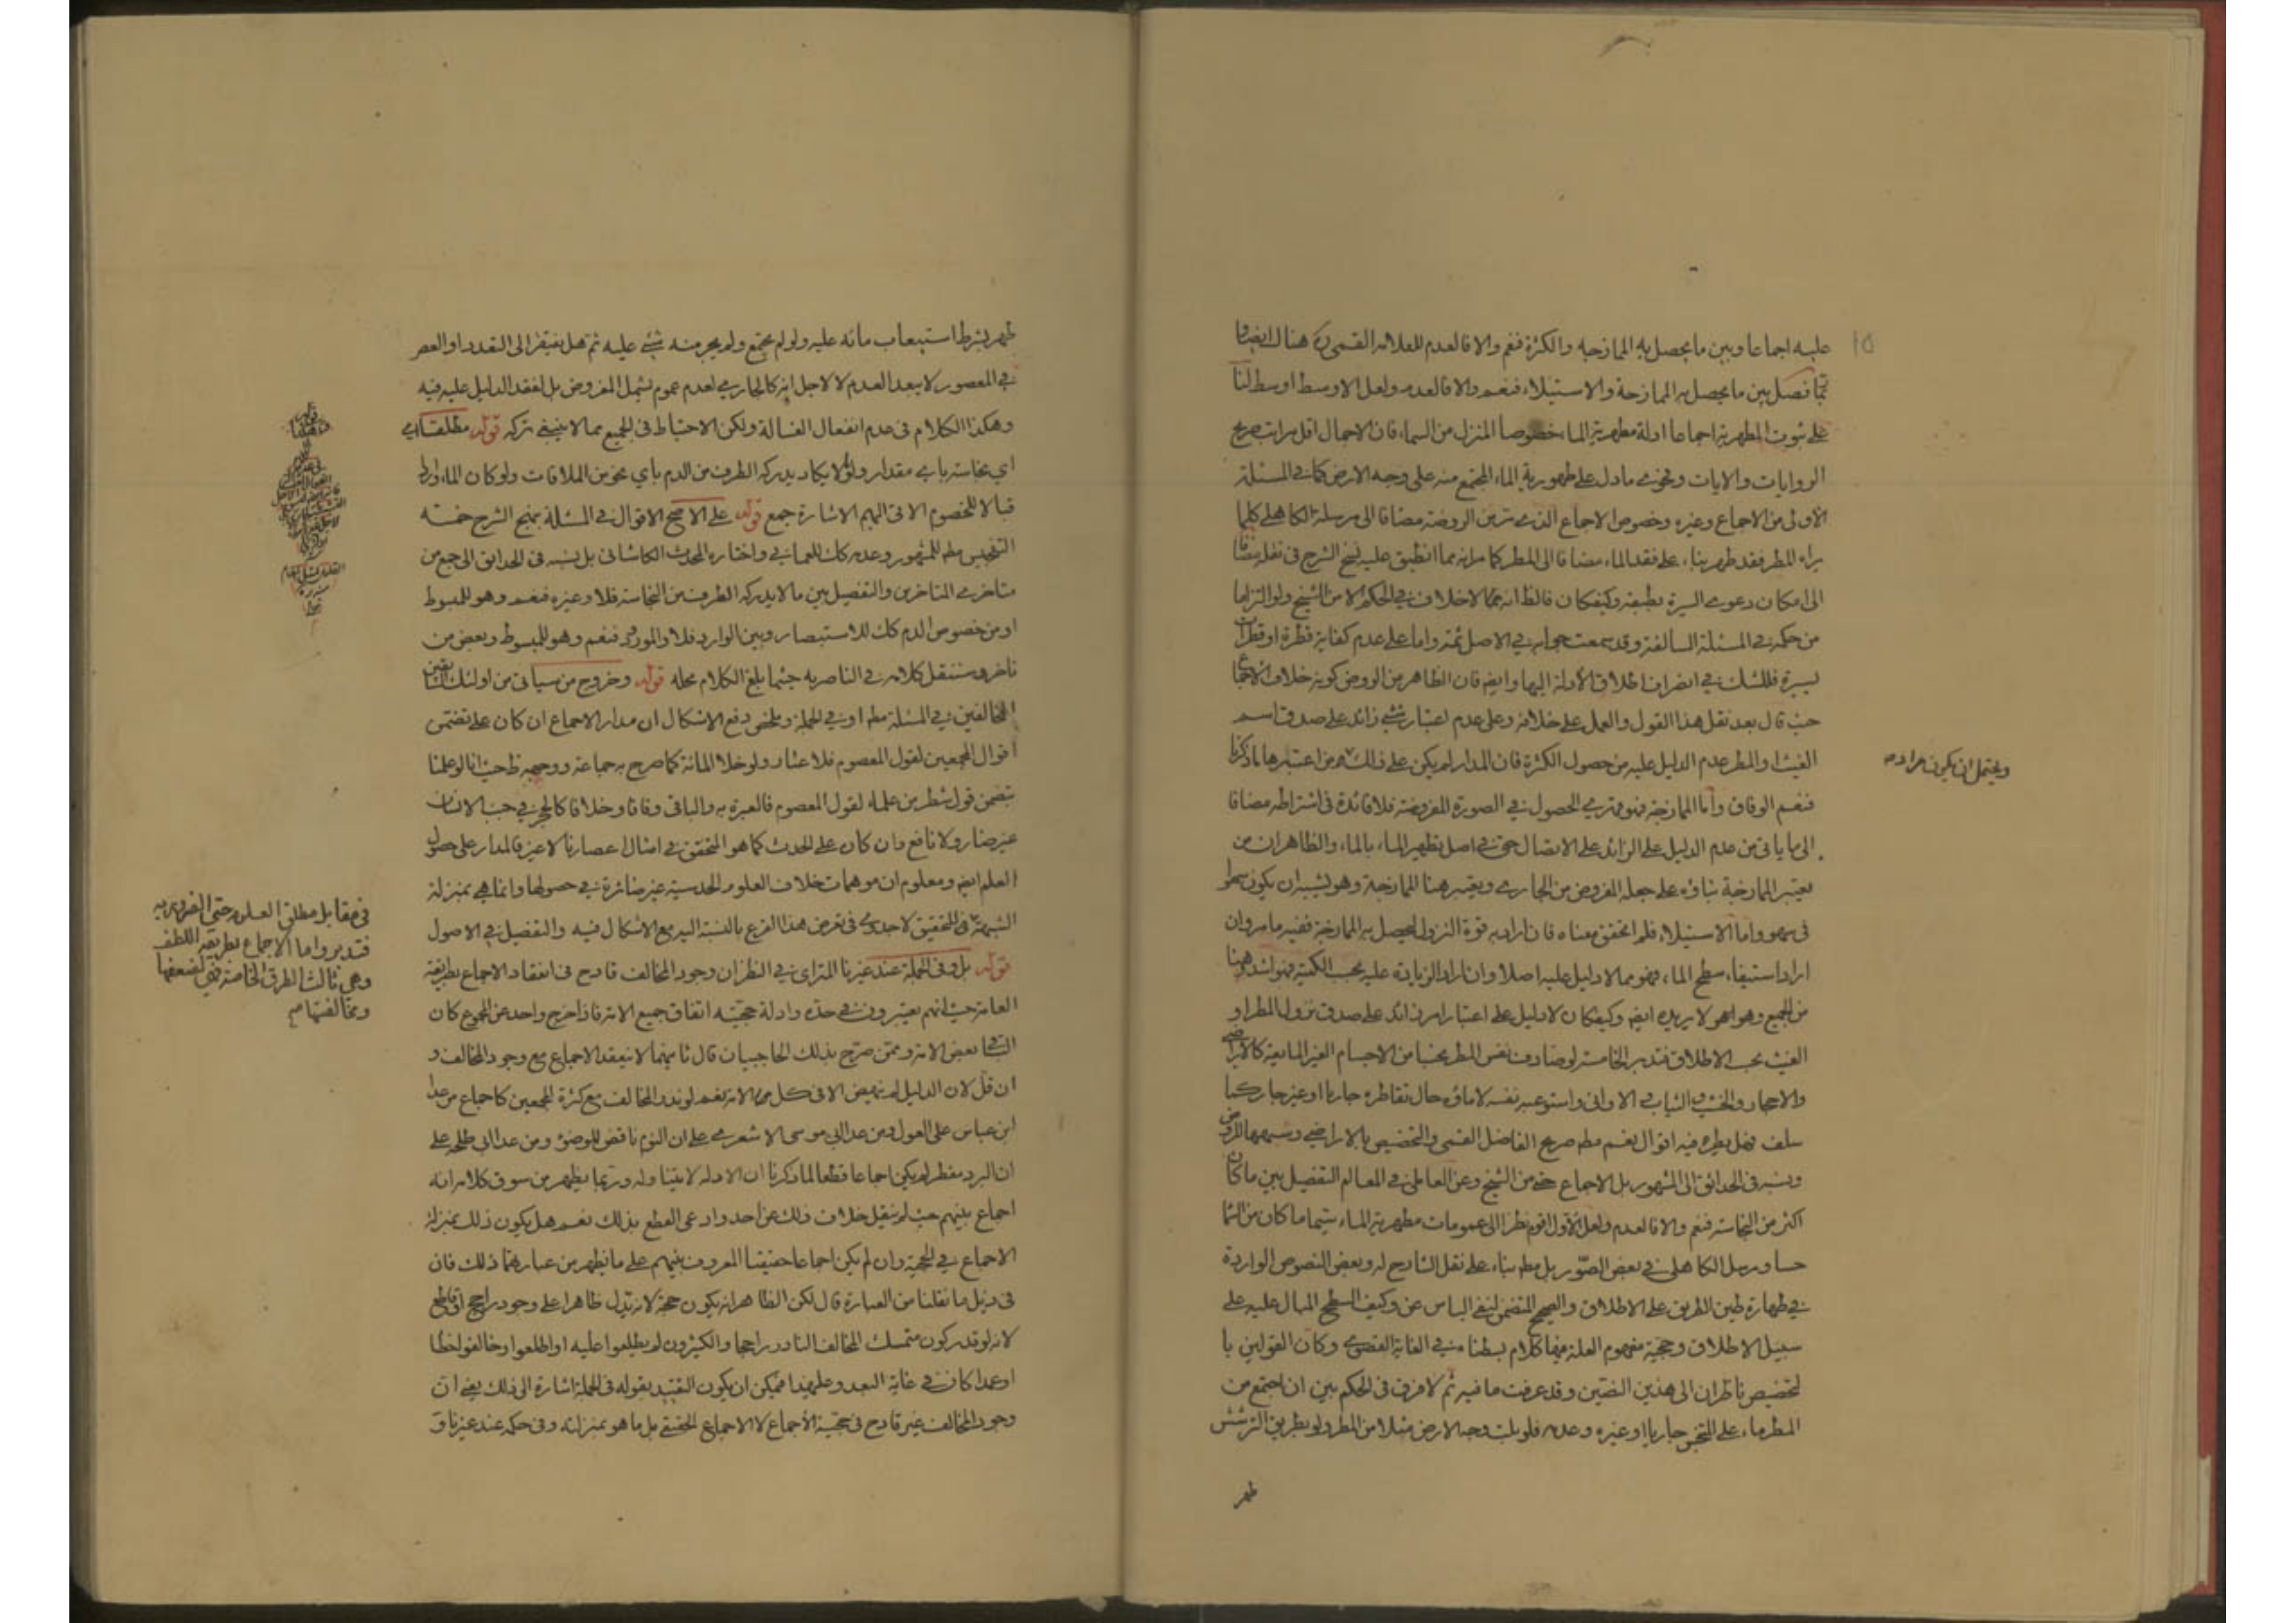 عليه اجماعا وبين ما يحصل به الممازجة والكثرة فنعم والا فالعدم للعلامه القمي ره هنالك ايضا
تما فصل بين ما يحصل به الممازجة والاستيلاء فنعم والا فالعدم ولعل الاوسط اوسط لنا
على ثبوت المطهرية اجماعا ادلة مطهرية الماء خصوصا المنزل من السماء فان الاجمال اقل مراتب صريح
الروايات والايات وفحوى ما دل على طهورية الماء المجتمع منه على وجه الارض كما في المسئلة
الاولى من الاجماع وغيره وخصوص الاجماع الذي ترى الروضة مضافا الى مرسلة الكاهلي كلما
يراه المطر فقد طهر بناء على فقد الماء مضافا الى المطر كما مر انه مما انطبق عليه نسخ الشرح في نقله مضافا
الى امكان دعوى السيرة بطبقه وكيفكان فالظ انه مما لاخلاف في الحكم الا من الشيخ ولو التزاما
من حكمه في المسئلة السالفة وقد سمعت جوابه في الاصل ثمه واما على عدم كفاية قطرة او قطرات
يسيرة فللشك في انصراف اطلاق الادلة اليها وايضا فان الظاهر من الروض كونه خلاف الاجماع
حيث قال بعد نقل هذا القول والعمل على خلافه وعلى عدم اعتبار شيء زائد على صدق اسم
الغيث او المطر عدم الدليل عليه من حصول الكثرة فان المدار لم يكن على ذلك من اعتبرها ما ذكرنا
فنعم الوفاق واما الممازجة فهو قهري الحصول في الصورة المفروضة فلا فائدة في اشتراطه مضافا
الى ما ياتي من عدم الدليل على الزائد على الاتصال حتى في اصل تطهير الماء بالماء والظاهر ان من
يعتبر الممازجة بناؤه على جعله المفروض من الجاري ويعتبر هنا الممازجة وهو يشبه ان يكون سهوا
في سهو واما الاستيلاء فلم اتحقق معناه فان اراد به قوة النزول ليحصل به الممازجة ففيه ما مر وان
اراد استيفاء سطح الماء فهو مما لا دليل عليه اصلا وان اراد الزيادة عليه بحسب الكمية فهو اشد وهنا
من الجميع وهو هو لا يريده ايضا وكيفكان لا دليل على اعتبار امر زائد على صدق نزول المطر او
الغيث بحسب الاطلاق فتدبر الخامسة لو صادف نفس المطر نجسا من الاجسام الغير المايعة كالاراضي
والاحجار والخشب والثياب في الاواني واستوعبه نفسه لا ماؤه حال تقاطره جاريا او غير جار كما
سلف فهل يطهره فيه اقوال نعم مطم صريح الفاضل القمي والتخصيص بالاراضي وشبهها للروض
ونسبه في الحدائق الى المشهور بل الاجماع حتى من الشيخ وعن العاملي في المعالم التفصيل بين ما كان
اكثر من النجاسة فنعم والا فالعدم ولعل الاول اقوى نظرا الى عمومات مطهرية الماء سيما ما كان من السماء
حسا ومرسل الكاهلي في بعض الصور بل مطم بناء على نقل الشارح له وبعض النصوص الواردة
في طهارة طين الطريق على الاطلاق والصحيح المتضمن لنفي الباس عن وكيف السطح المبال عليه على
سبيل الاطلاق وحجية مفهوم العلة فيها كلام بسطنا في الغاية القصوى وكان القولين با
لتخصيص ناظران الى هذين النصين وقد عرفت ما فيه ثم لا فرق في الحكم بين ان اجتمع من
المطر ماء على النجس جاريا او غيره وعدمه فلو بلت وجه الارض مثلا من المطر ولو بطريق الترشش
طهر
ويحتمل ان يكون مراده
طهر بشرط استيعاب مائه عليه ولو لم يجتمع ولم يجر منه شيء عليه ثم هل يفتقر الى التعدد او العصر
في المعصور لا يبعد العدم لا لاجل انه كالجاري لعدم عموم يشمل المفروض بل لفقد الدليل عليه فيه
وهكذا الكلام في عدم انفعال الغسالة ولكن الاحتياط في الجميع مما لا ينبغي تركه قوله مطلقا
اي نجاسة باي مقدار ولو لا يكاد يدركه الطرف من الدم باي نحو من الملاقات ولو كان الماء واردا
قبالا للخصوم الاتي اليهم الاشارة جمع قوله على الاصح الاقوال في المسئلة بنهج الشرح خمسة
التنجيس مطم للمشهور وعدمه كك للعماني واختاره المحدث الكاشاني بل نسبه في الحدائق الى جمع من
متاخري المتاخرين والتفصيل بين ما لا يدركه الطرف من النجاسة فلا وغيره فنعم وهو للمبسوط
او من خصوص الدم كك للاستبصار وبين الوارد فلا والمورود فنعم وهو للمبسوط وبعض من
تاخر وسننقل كلامه في الناصرية حيثما بلغ الكلام محله قوله وخروج من سياتي من اولئك
المخالفين في المسئلة مطم او في الجملة وملخص دفع الاشكال ان مدار الاجماع ان كان على تضمن
اقوال المجمعين لقول المعصوم فلا عثار ولو خلا المائة كما صرح به جماعة ووجهه ظ حيث انا لو علمنا
بتضمن قول شطر من علماء لقول المعصوم فالعبرة به والباقي وفاقا وخلافا كالحجر في جنب الانسان
غير ضار ولا نافع وان كان على الحدث كما هو المتحقق في امثال اعصارنا لا غير فالمدار على حصول
العلم ايضا ومعلوم ان موهمات خلاف العلوم الحدسية غير ضائرة في حصولها وانما هي بمنزلة
الشبهة في التحقيق لا جدوى في تعرض هذا الفرع بالنسبة اليه مع الاشكال فيه والتفصيل في الاصول
قوله بل وفي الجملة عند غيرنا المتراي في النظر ان وجود المخالف قادح في انعقاد الاجماع بطريقة
العامة حيث انهم يعتبرون في حده وادلة حجيته اتفاق جميع الامة فاذا خرج واحد عن المجموع كان
الباقي بعض الامة وممن صرح بذلك الحاجبيان قال ثانيهما لا ينعقد الاجماع مع وجود المخالف و
ان قل لان الدليل لم ينهض الا في كل الامة نعم لو ندر المخالف مع كثرة المجمعين كاجماع من عدا
ابن عباس على العول ومن عدا ابي موسى الاشعري على ان النوم ناقض للوضوء ومن عدا ابي طلحه على
ان البرد مفطر لم يكن اجماعا قطعا لما ذكرنا ان الادلة لا يتناوله وربما يظهر من سوق كلامه انه
اجماع بينهم حيث لم ينقل خلاف ذلك عن احد وادعى القطع بذلك نعم هل يكون ذلك بمنزلة
الاجماع في الحجية وان لم يكن اجماعا حقيقيا المعروف بينهم على ما يظهر من عبارتهما ذلك فان
في ذيل ما نقلنا من العبارة قال لكن الظاهر انه يكون حجة لانه يدل ظاهرا على وجود راجح او قاطع
لانه لو قدر كون متمسك المخالف النادر راجحا والكثيرون لم يطلعوا عليه او اطلعوا وخالفوا خطا
او عمدا كان في غاية البعد وعلى هذا فيمكن ان يكون التقييد بقوله في الجملة اشارة الى ذلك يعني ان
وجود المخالف غير قادح في حجية الاجماع لا الاجماع الحقيقي بل ما هو بمنزلته وفي حكمه عند غيرنا و
في مقابل مطلق العلوم حتى الضرورية
فتدبر واما الاجماع بطريقه اللطف
وهي ثالث الطرق الخاصة فهي لضعفها
ومخالفتها